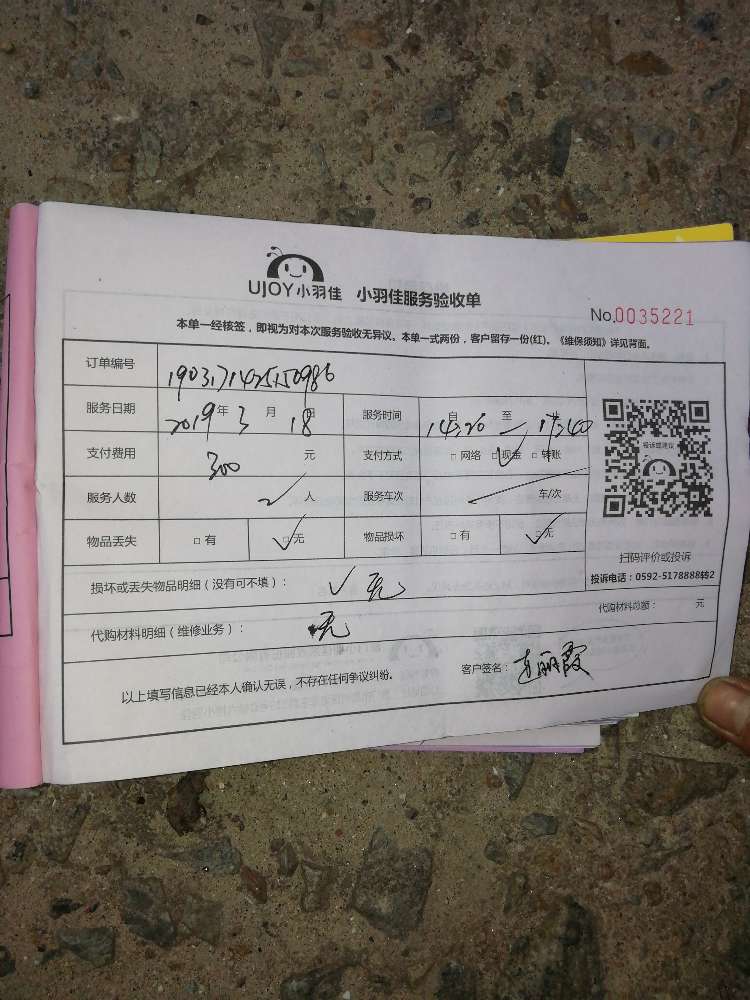 UJOY小羽佳 小羽佳服务验收单
No.0035221
本单一经核签，即视为对本次服务验收无异议。本单一式两份，客户留存一份(红)。《维保须知》详见背面。
订单编号 1903171425150986
服务日期 2019年3月18日 服务时间 自14:20至17:40
支付费用 300元 支付方式 □网络 □现金 □转账
投诉或建议
服务人数 人 服务车次 车/次
物品丢失 □有 □无 物品损坏 □有 □无
扫码评价或投诉
投诉电话：0592-5178888转2
损坏或丢失物品明细（没有可不填）： 无
代购材料明细（维修业务）： 无 代购材料总额： 元
以上填写信息已经本人确认无误，不存在任何争议纠纷。 客户签名： 丽霞